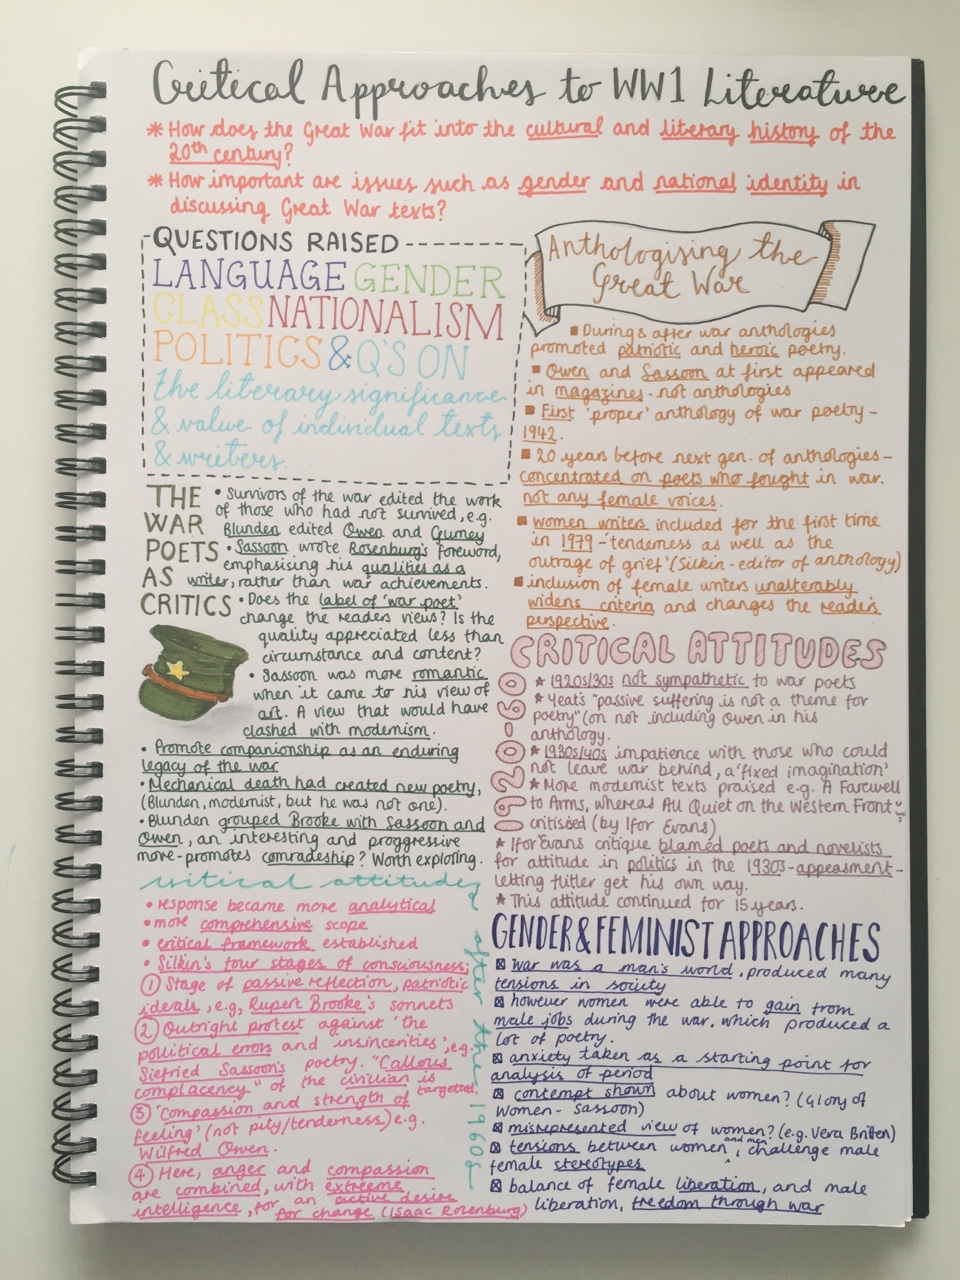 Critical Approaches to WW1 Literature
* How does the Great War fit into the cultural and literary history of the
20th century?
* How important are issues such as gender and national identity in
discussing Great War texts?
QUESTIONS RAISED
LANGUAGE GENDER
CLASS NATIONALISM
POLITICS & Q'S ON
the literary significance
& value of individual texts
& writers.
THE
WAR
POETS
AS
CRITICS
• Survivors of the war edited the work
of those who had not survived, e.g.
Blunden edited Owen and Gurney
• Sassoon wrote Rosenburg's foreword,
emphasising his qualities as a
writer, rather than war achievements.
• Does the label of 'war poet'
change the readers views? Is the
quality appreciated less than
circumstance and content?
• Sassoon was more romantic
when it came to his view of
art. A view that would have
clashed with modernism.
• Promote companionship as an enduring
legacy of the war
• Mechanical death had created new poetry,
(Blunden, modernist, but he was not one).
• Blunden grouped Brooke with Sassoon and
Owen, an interesting and proggressive
more - promotes comradeship? Worth exploring.
critical attitudes after the 1960s
• response became more analytical
• more comprehensive scope
• critical framework established
• Silkin's four stages of consciousness;
① Stage of passive reflection, patriotic
ideals, e.g, Rupert Brooke's sonnets
② Outright protest against 'the
political errors and insincerities', e.g.
Siefried Sassoon's poetry. "Callous
complacency" of the civilian is
targetted.
③ 'Compassion and strength of
feeling' (not pity/tenderness,) e.g.
Wilfred Owen.
④ Here, anger and compassion
are combined, with extreme
intelligence, for an active desire
for change (Isaac Rosenburg)
Anthologising the
Great War
■ During & after war anthologies
promoted patriotic and heroic poetry.
■ Owen and Sassoon at first appeared
in magazines - not anthologies
■ First 'proper' anthology of war poetry -
1942.
■ 20 years before next gen. of anthologies -
concentrated on poets who fought in war.
not any female voices.
■ women writers included for the first time
in 1979 - 'tenderness as well as the
outrage of grief' (Silkin - editor of anthology)
■ inclusion of female writers unalterably
widens criteria and changes the reader's
perspective.
CRITICAL ATTITUDES
1920-60
★ 1920s/30s not sympathetic to war poets
★ Yeat's "passive suffering is not a theme for
poetry" (on not including Owen in his
anthology.
★ 1930s/40s impatience with those who could
not leave war behind, a 'fixed imagination'
★ More modernist texts praised e.g. A Farewell
to Arms, whereas All Quiet on the Western Front
critisised (by Ifor Evans)
★ Ifor Evans critique blamed poets and novelists
for attitude in politics in the 1930s - appeasment -
letting Hitler get his own way.
★ This attitude continued for 15 years.
GENDER & FEMINIST APPROACHES
☒ war was a man's world, produced many
tensions in society
☒ however women were able to gain from
male jobs during the war, which produced a
lot of poetry.
☒ anxiety taken as a starting point for
analysis of period
☒ contempt shown about women? (Glory of
Women - Sassoon)
☒ misrepresented view of women? (e.g. Vera Britten)
☒ tensions between women and men, challenge male
female stereotypes
☒ balance of female liberation, and male
liberation, freedom through war